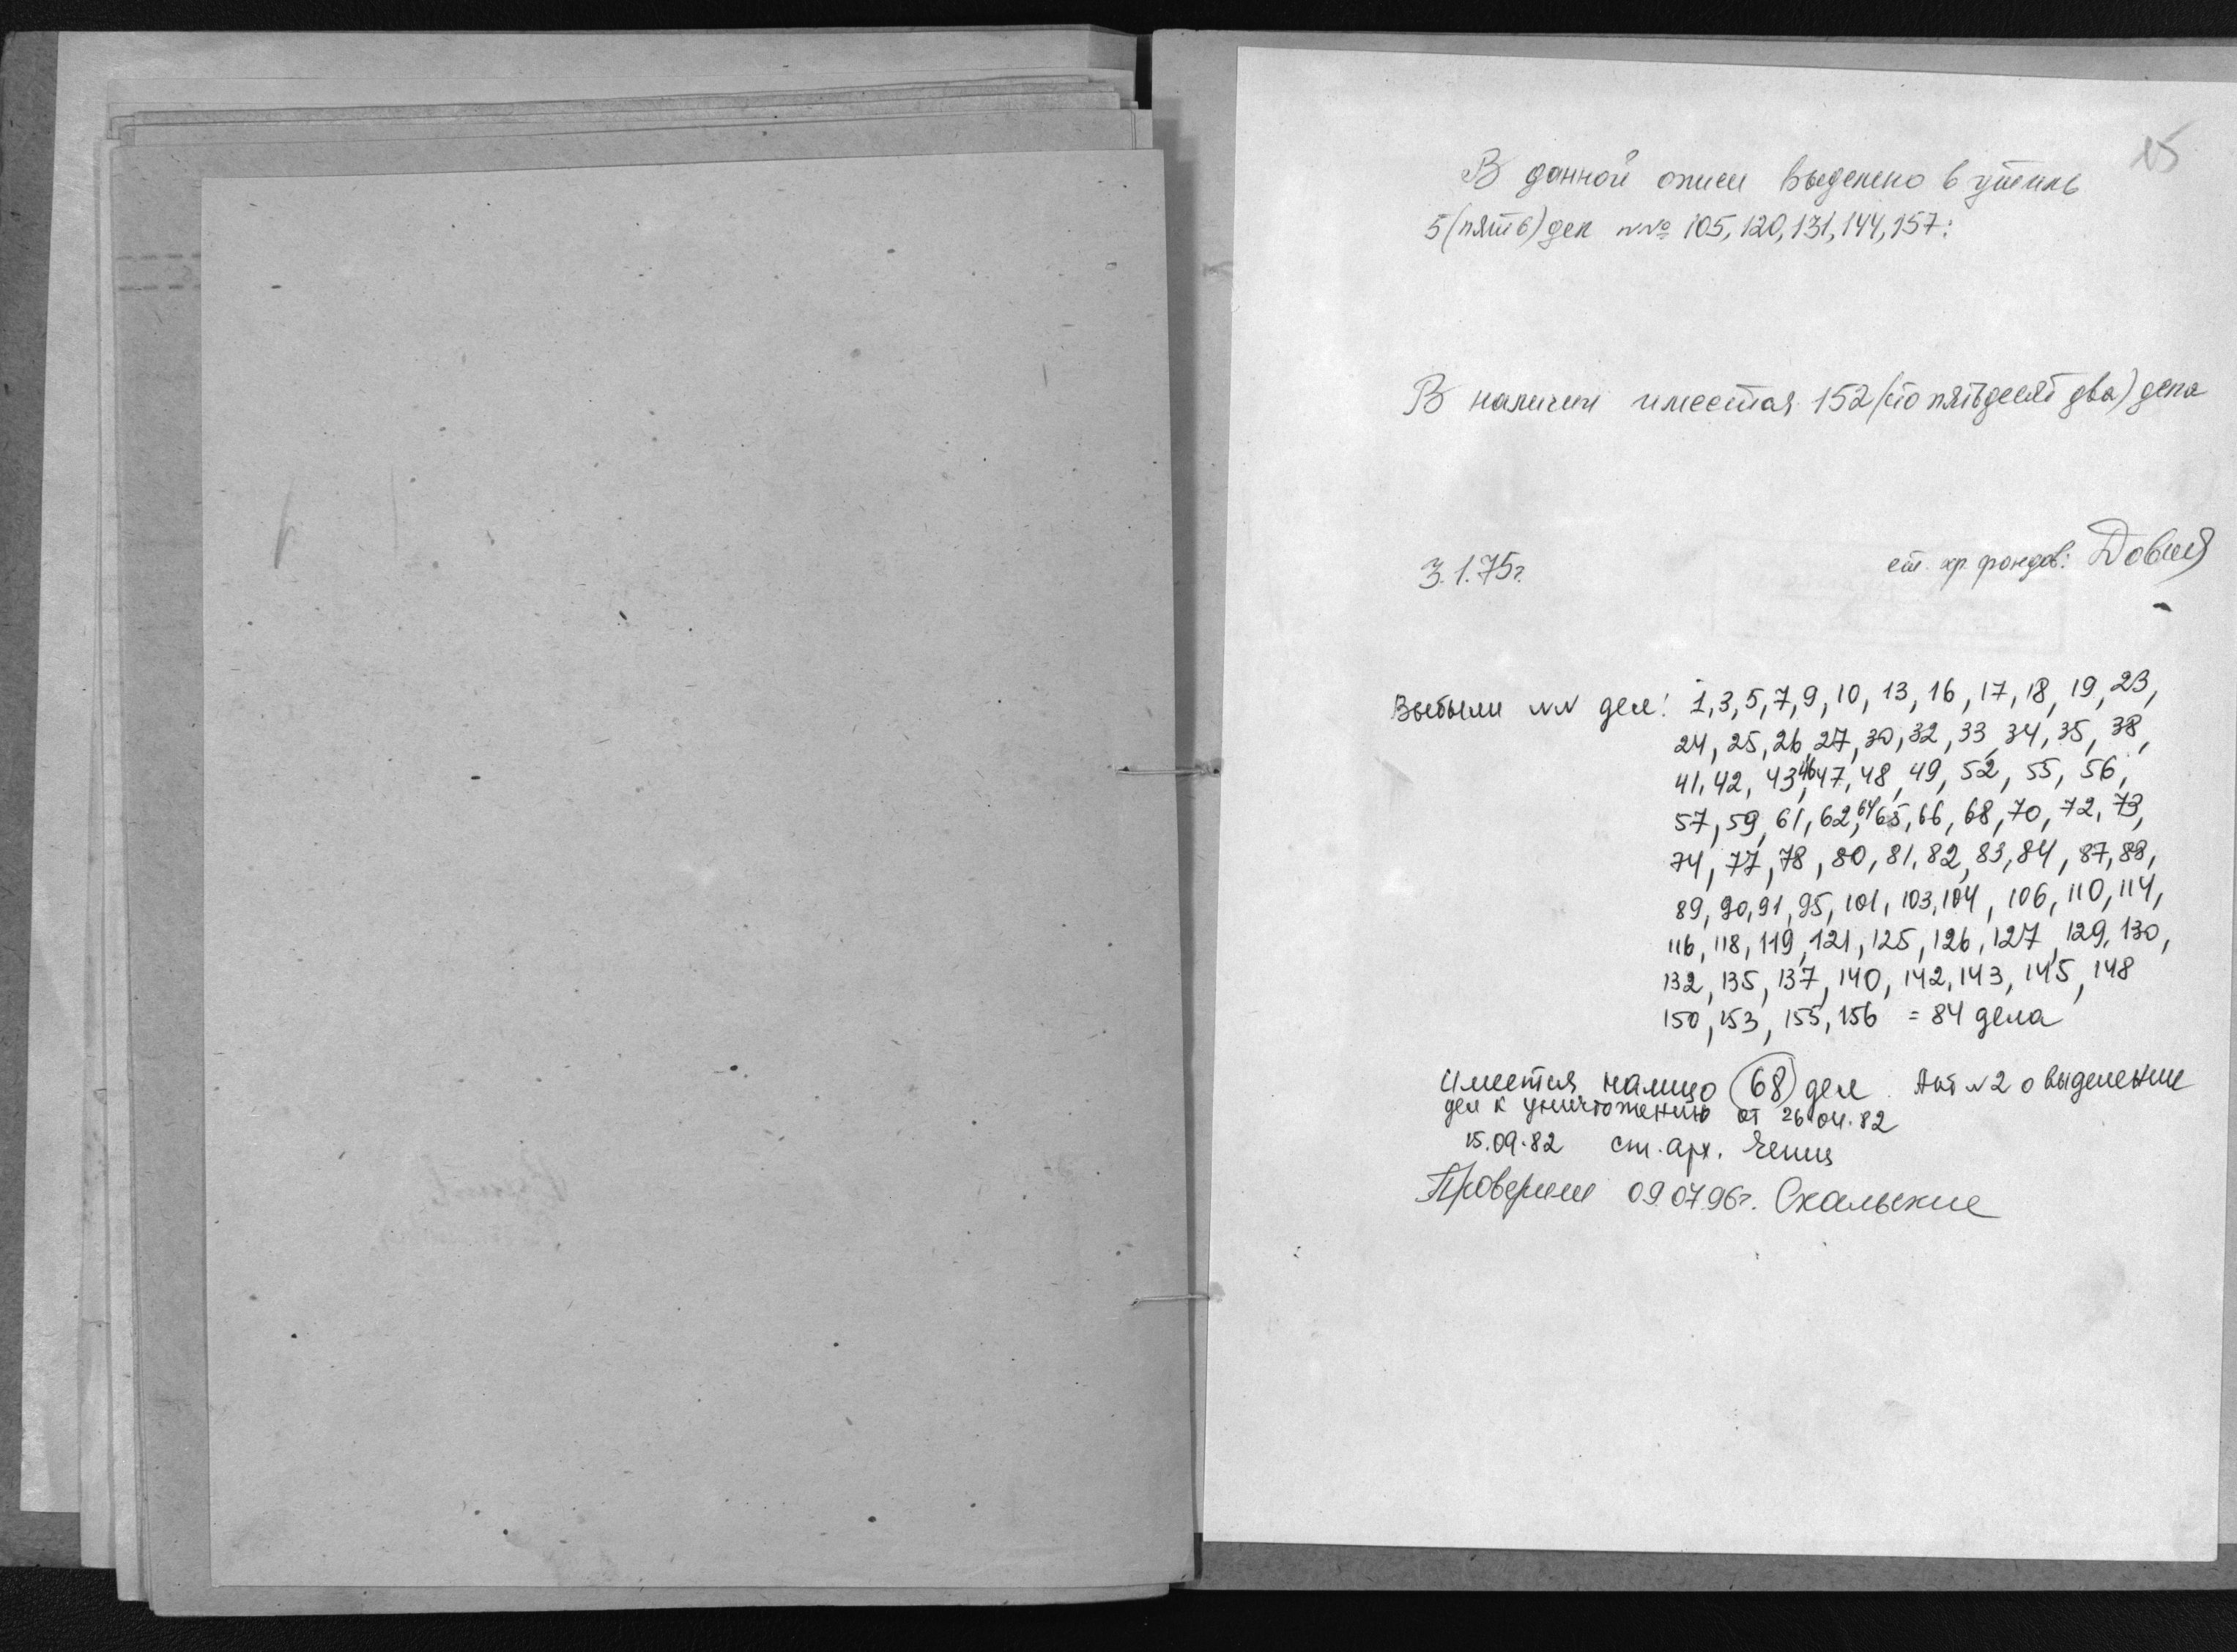 15
В данной описи выделено в утиль
5 (пять) дел №№ 105, 120, 131, 144, 157:
В наличии имеется 152 (сто пятьдесят два) дела
3.1.75г. ст. хр. фондов:
Выбыли NN дел: 1, 3, 5, 7, 9, 10, 13, 16, 17, 18, 19, 23,
24, 25, 26, 27, 30, 32, 33, 34, 35, 38,
41, 42, 43, 46, 47, 48, 49, 52, 55, 56,
57, 59, 61, 62, 64, 65, 66, 68, 70, 72, 73,
74, 77, 78, 80, 81, 82, 83, 84, 87, 88,
89, 90, 91, 95, 101, 103, 104, 106, 110, 114,
116, 118, 119, 121, 125, 126, 127, 129, 130,
132, 135, 137, 140, 142, 143, 145, 148
150, 153, 155, 156 = 84 дела
Имеется налицо 68 дел. Акт N2 о выделении
дел к уничтожению от 26.04.82
15.09.82 ст. арх.
Проверили 09.07.96г.